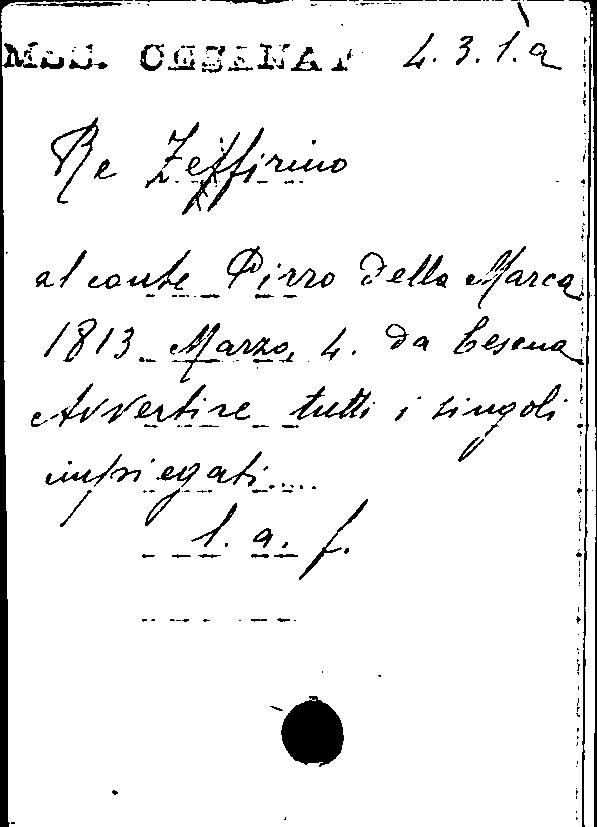 MSS. CESENATI 4.3.1.a
Re Zeffirino
al conte Pirro della Marca
1813. Marzo, 4. da Cesena
Avvertire tutti i singoli
impiegati....
l. a. f.